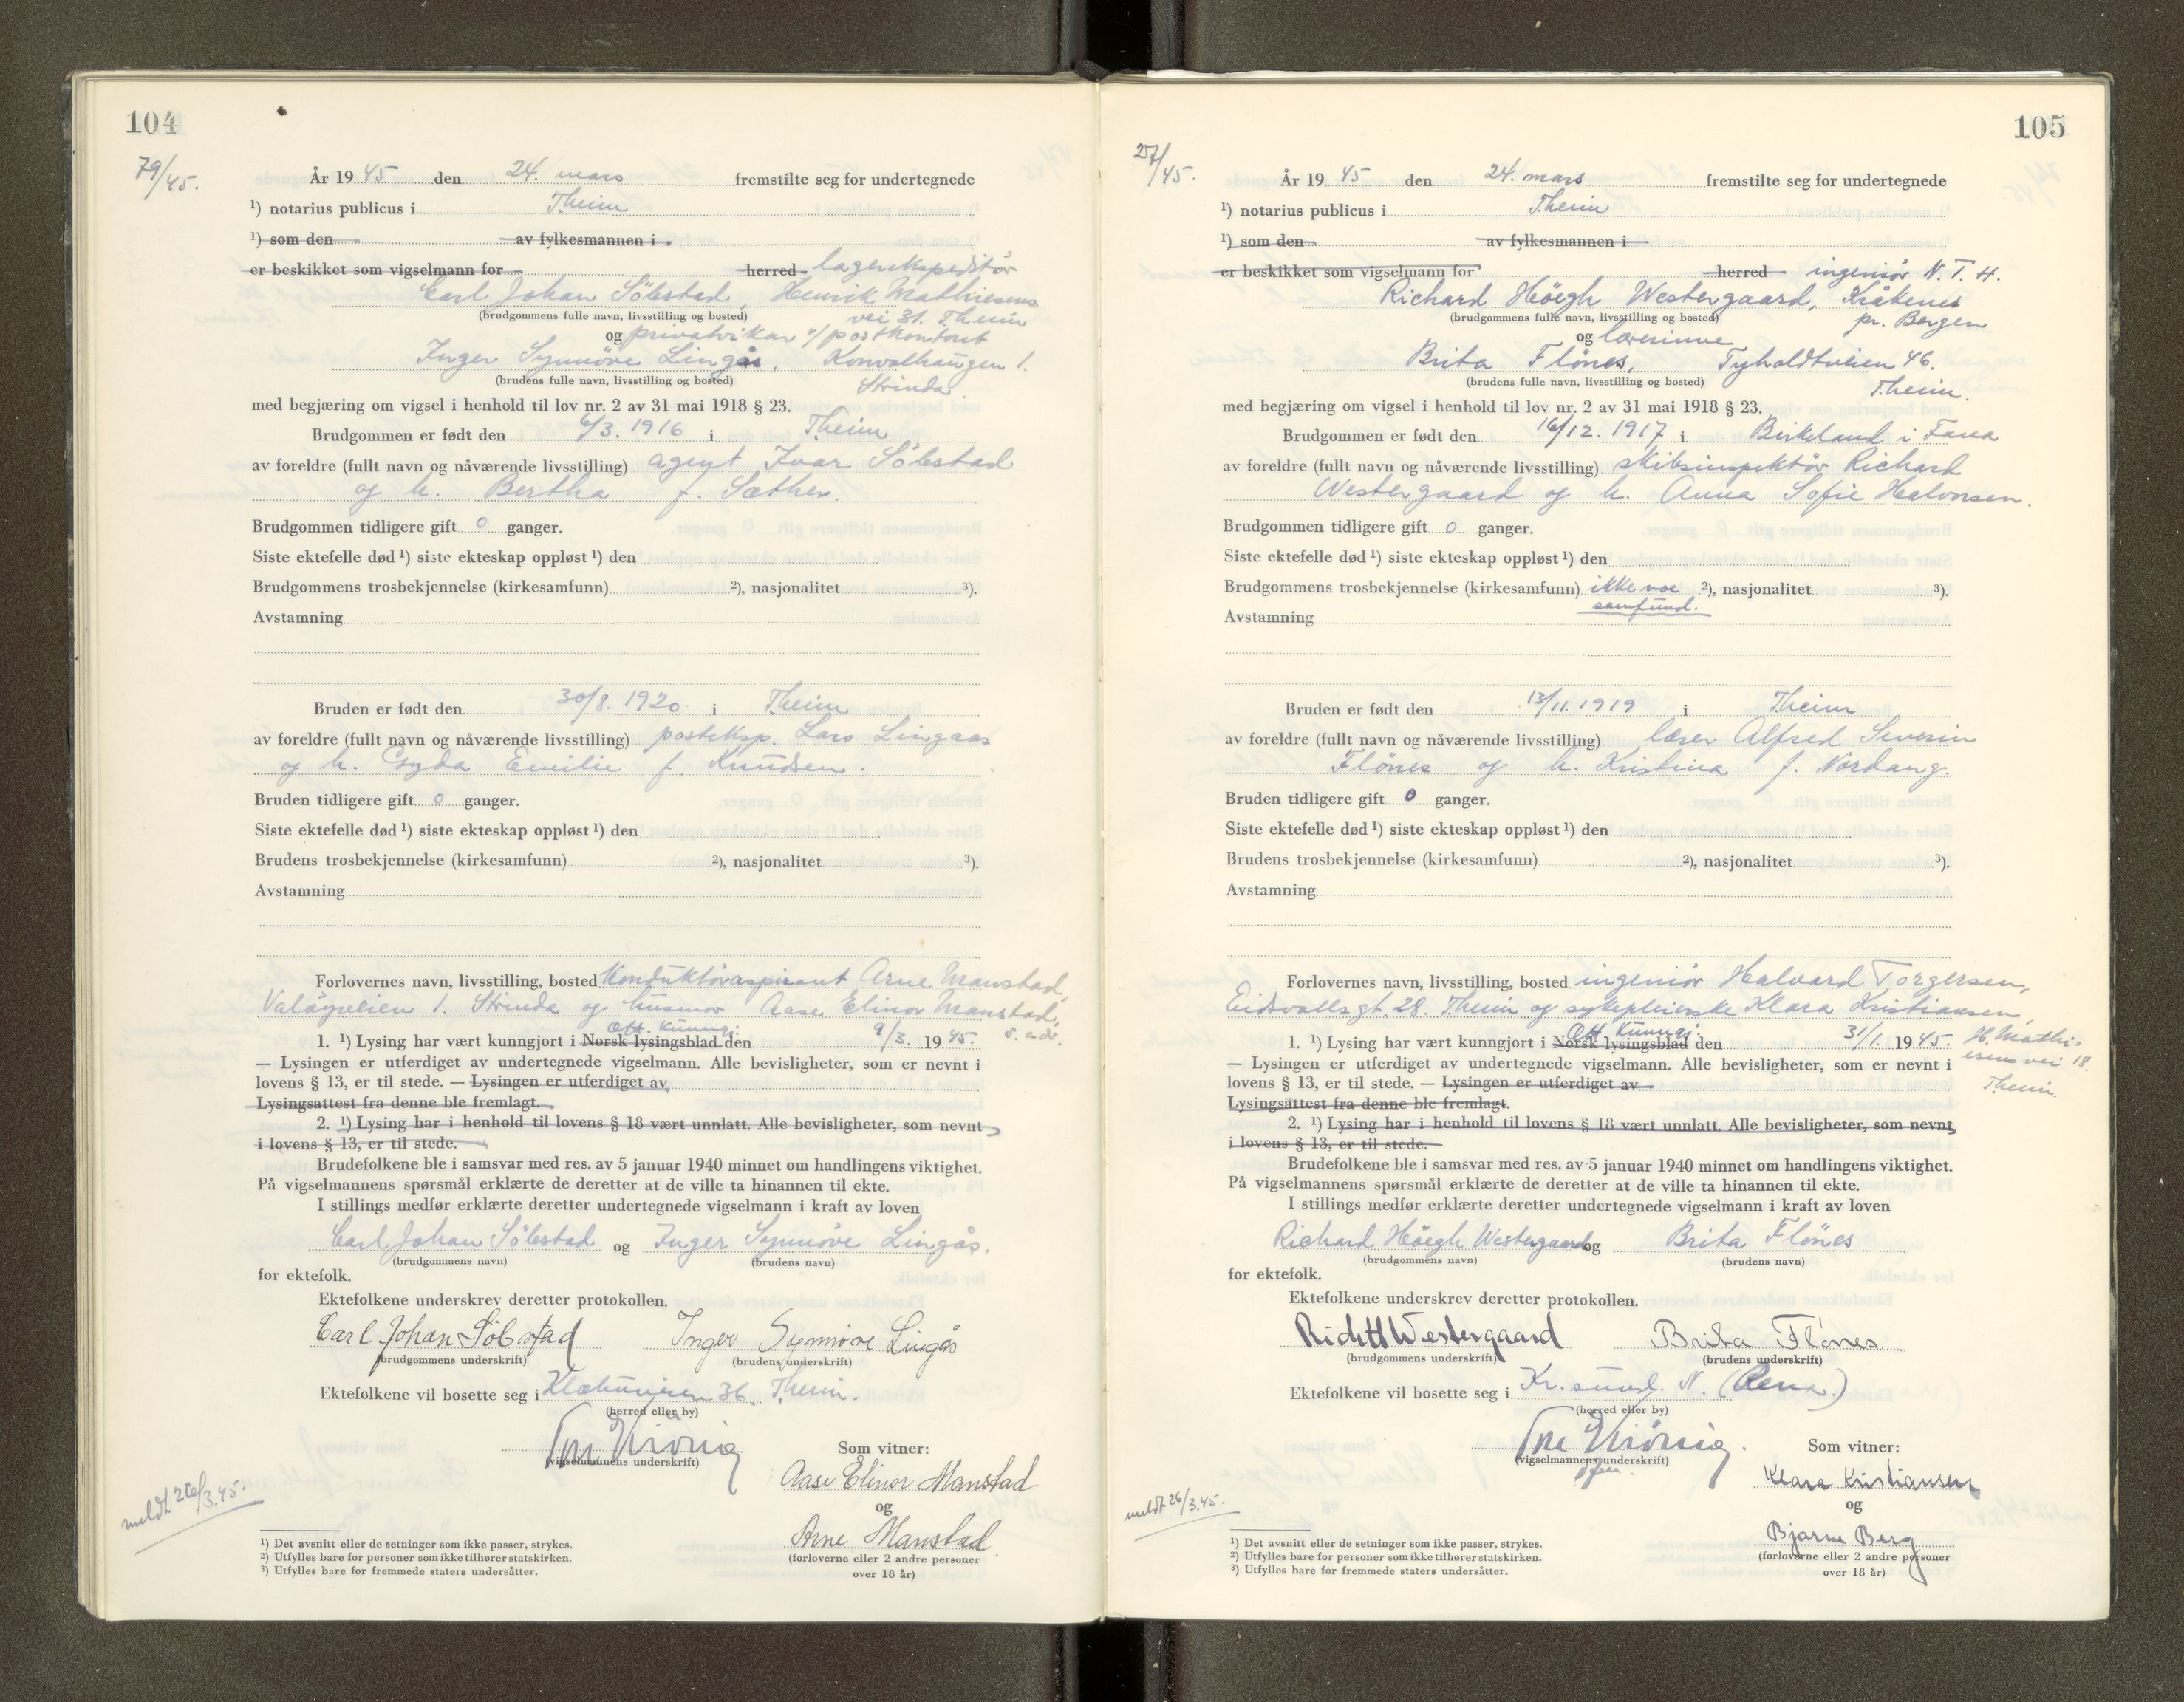 104
79/45.
År 1945 den 24. mars fremstilte seg for undertegnede
¹) notarius publicus i Theim
¹) som den av fylkesmannen i
er beskikket som vigselmann for herred lagerekspeditör
Carl Johan Sölestad, Henrik Mathiesens
(brudgommens fulle navn, livsstilling og bosted) vei 31. Theim
og privatvikar v/ postkontoret
Inger Synnöve Lingås, Konvalhaugen 1.
(brudens fulle navn, livsstilling og bosted) Strinda
med begjæring om vigsel i henhold til lov nr. 2 av 31 mai 1918 § 23.
Brudgommen er født den 6/3. 1916 i Theim
av foreldre (fullt navn og nåværende livsstilling) agent Ivar Sölestad
og h. Bertha f. Sæther.
Brudgommen tidligere gift 0 ganger.
Siste ektefelle død ¹) siste ekteskap oppløst ¹) den
Brudgommens trosbekjennelse (kirkesamfunn) ²), nasjonalitet ³).
Avstamning
Bruden er født den 30/8. 1920 i Theim
av foreldre (fullt navn og nåværende livsstilling) posteksp. Lars Lingaas
og h. Gyda Emilie f. Knudsen.
Bruden tidligere gift 0 ganger.
Siste ektefelle død ¹) siste ekteskap oppløst ¹) den
Brudens trosbekjennelse (kirkesamfunn) ²), nasjonalitet ³).
Avstamning
Forlovernes navn, livsstilling, bosted Konduktöraspirant Arne Manstad,
Valöyveien 1. Strinda og husmor Aase Elinor Manstad,
s. adr.
Off. kunngj.
1. ¹) Lysing har vært kunngjort i Norsk lysingsblad den 9/3. 1945.
— Lysingen er utferdiget av undertegnede vigselmann. Alle bevisligheter, som er nevnt i
lovens § 13, er til stede. — Lysingen er utferdiget av
Lysingsattest fra denne ble fremlagt.
2. ¹) Lysing har i henhold til lovens § 18 vært unnlatt. Alle bevisligheter, som nevnt
i lovens § 13, er til stede.
Brudefolkene ble i samsvar med res. av 5 januar 1940 minnet om handlingens viktighet.
På vigselmannens spørsmål erklærte de deretter at de ville ta hinannen til ekte.
I stillings medfør erklærte deretter undertegnede vigselmann i kraft av loven
Carl Johan Sölestad og Inger Synnöve Lingås.
(brudgommens navn) (brudens navn)
for ektefolk.
Ektefolkene underskrev deretter protokollen.
Carl Johan Sölestad Inger Synnöve Lingås
(brudgommens underskrift) (brudens underskrift)
Ektefolkene vil bosette seg i Klæbuveien 36. Theim.
(herred eller by)
(vigselmannens underskrift)
Som vitner:
Aase Elinor Manstad
og
Arne Manstad
(forloverne eller 2 andre personer
over 18 år)
meldt 26/3.45.
¹) Det avsnitt eller de setninger som ikke passer, strykes.
²) Utfylles bare for personer som ikke tilhører statskirken.
³) Utfylles bare for fremmede staters undersåtter.
105
27/45.
År 1945 den 24. mars fremstilte seg for undertegnede
¹) notarius publicus i Theim
¹) som den av fylkesmannen i
er beskikket som vigselmann for herred ingeniör N. T. H.
Richard Höegh Westergaard, Kråkenes
(brudgommens fulle navn, livsstilling og bosted) pr. Bergen
og lærerinne
Brita Flönes, Tyholdtveien 46.
(brudens fulle navn, livsstilling og bosted) Theim.
med begjæring om vigsel i henhold til lov nr. 2 av 31 mai 1918 § 23.
Brudgommen er født den 16/12. 1917 i Birkeland i Fana
av foreldre (fullt navn og nåværende livsstilling) skibsinspektör Richard
Westergaard og h. Anna Sofie Halvorsen.
Brudgommen tidligere gift 0 ganger.
Siste ektefelle død ¹) siste ekteskap oppløst ¹) den
Brudgommens trosbekjennelse (kirkesamfunn) ikke noe ²), nasjonalitet ³).
samfund.
Avstamning
Bruden er født den 13/11. 1919 i Theim
av foreldre (fullt navn og nåværende livsstilling) lærer Alfred Severin
Flönes og h. Kristina f. Nordang.
Bruden tidligere gift 0 ganger.
Siste ektefelle død ¹) siste ekteskap oppløst ¹) den
Brudens trosbekjennelse (kirkesamfunn) ²), nasjonalitet ³).
Avstamning
Forlovernes navn, livsstilling, bosted ingeniör Halvard Torgersen,
Eidsvollsgt. 28. Theim og sykepleierske Klara Kristiansen,
H. Mathi-
esens vei 18.
Theim.
Off. kunngj.
1. ¹) Lysing har vært kunngjort i Norsk lysingsblad den 31/1. 1945.
— Lysingen er utferdiget av undertegnede vigselmann. Alle bevisligheter, som er nevnt i
lovens § 13, er til stede. — Lysingen er utferdiget av
Lysingsattest fra denne ble fremlagt.
2. ¹) Lysing har i henhold til lovens § 18 vært unnlatt. Alle bevisligheter, som nevnt
i lovens § 13, er til stede.
Brudefolkene ble i samsvar med res. av 5 januar 1940 minnet om handlingens viktighet.
På vigselmannens spørsmål erklærte de deretter at de ville ta hinannen til ekte.
I stillings medfør erklærte deretter undertegnede vigselmann i kraft av loven
Richard Höegh Westergaard og Brita Flönes
(brudgommens navn) (brudens navn)
for ektefolk.
Ektefolkene underskrev deretter protokollen.
Rich H Westergaard Brita Flönes
(brudgommens underskrift) (brudens underskrift)
Ektefolkene vil bosette seg i Kr.sund. N. (Rena.)
(herred eller by)
(vigselmannens underskrift)
Som vitner:
Klara Kristiansen
og
Bjarne Berg
(forloverne eller 2 andre personer
over 18 år)
meldt 26/3.45.
¹) Det avsnitt eller de setninger som ikke passer, strykes.
²) Utfylles bare for personer som ikke tilhører statskirken.
³) Utfylles bare for fremmede staters undersåtter.